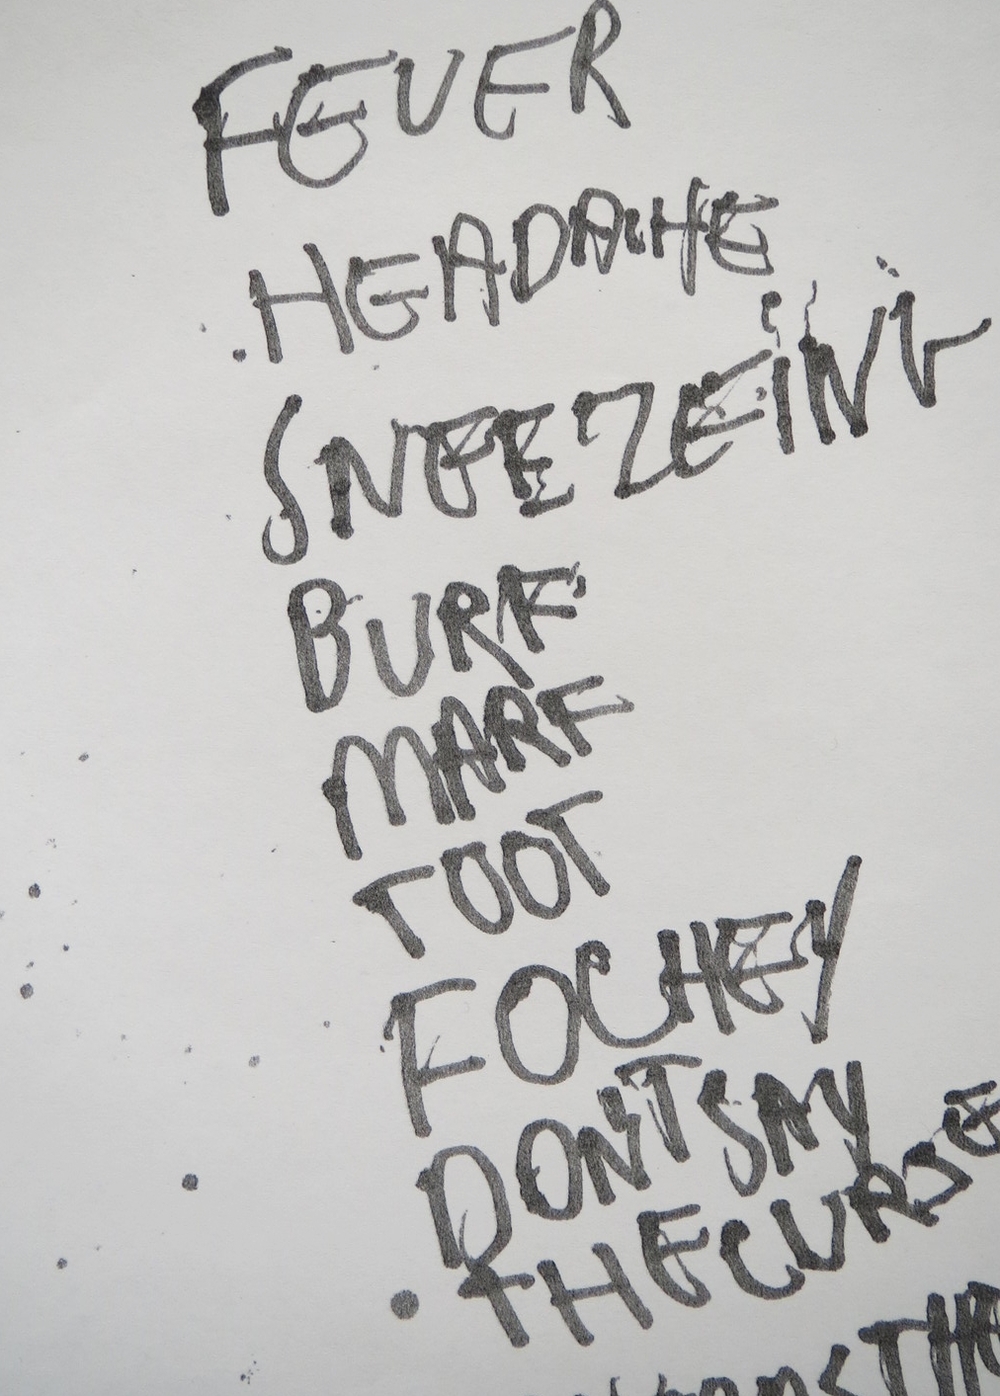 FEVER
HEADAHE
SNEEZEING
BURF
MARF
TOOT
FOCHEY
DONTSAY
THECURSE